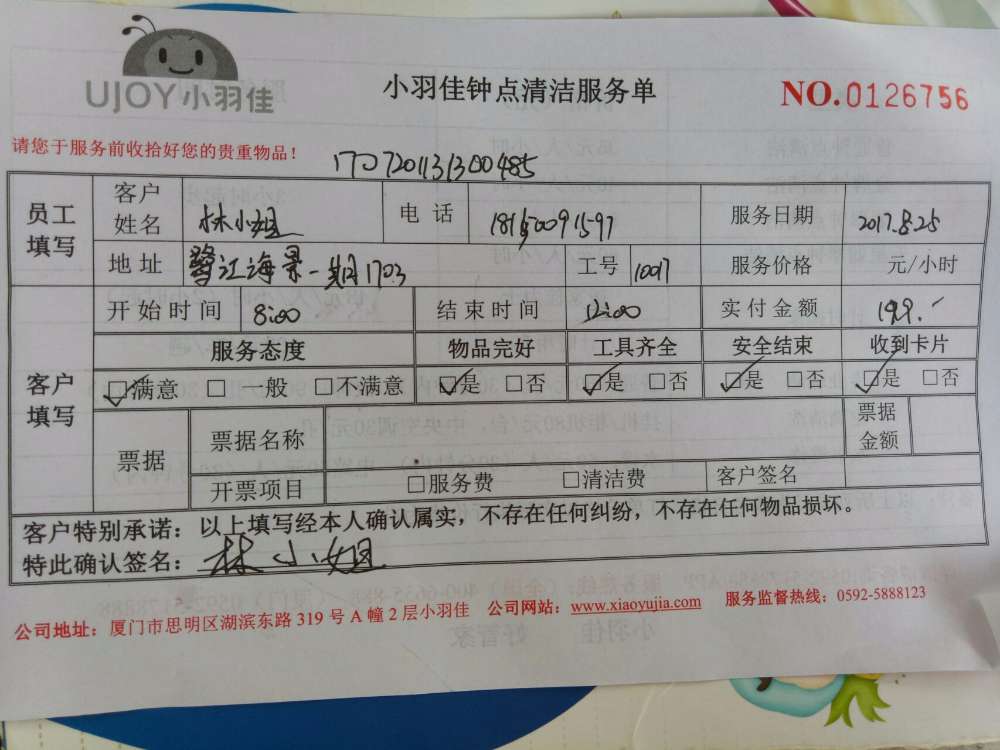 UJOY小羽佳
小羽佳钟点清洁服务单
NO.0126756
请您于服务前收拾好您的贵重物品！
员工填写 客户姓名 林小姐 电话 服务日期 2017.8.25
地址 鹭江海景一期1703 工号 10017 服务价格 元/小时
客户填写 开始时间 8:00 结束时间 12:00 实付金额 199.-
服务态度 物品完好 工具齐全 安全结束 收到卡片
☑满意 □一般 □不满意 ☑是 □否 ☑是 □否 ☑是 □否 ☑是 □否
票据 票据名称 票据金额
开票项目 □服务费 □清洁费 客户签名
客户特别承诺：以上填写经本人确认属实，不存在任何纠纷，不存在任何物品损坏。
特此确认签名：林小姐
公司地址：厦门市思明区湖滨东路 319 号 A 幢 2 层小羽佳 公司网站：www.xiaoyujia.com 服务监督热线：0592-5888123